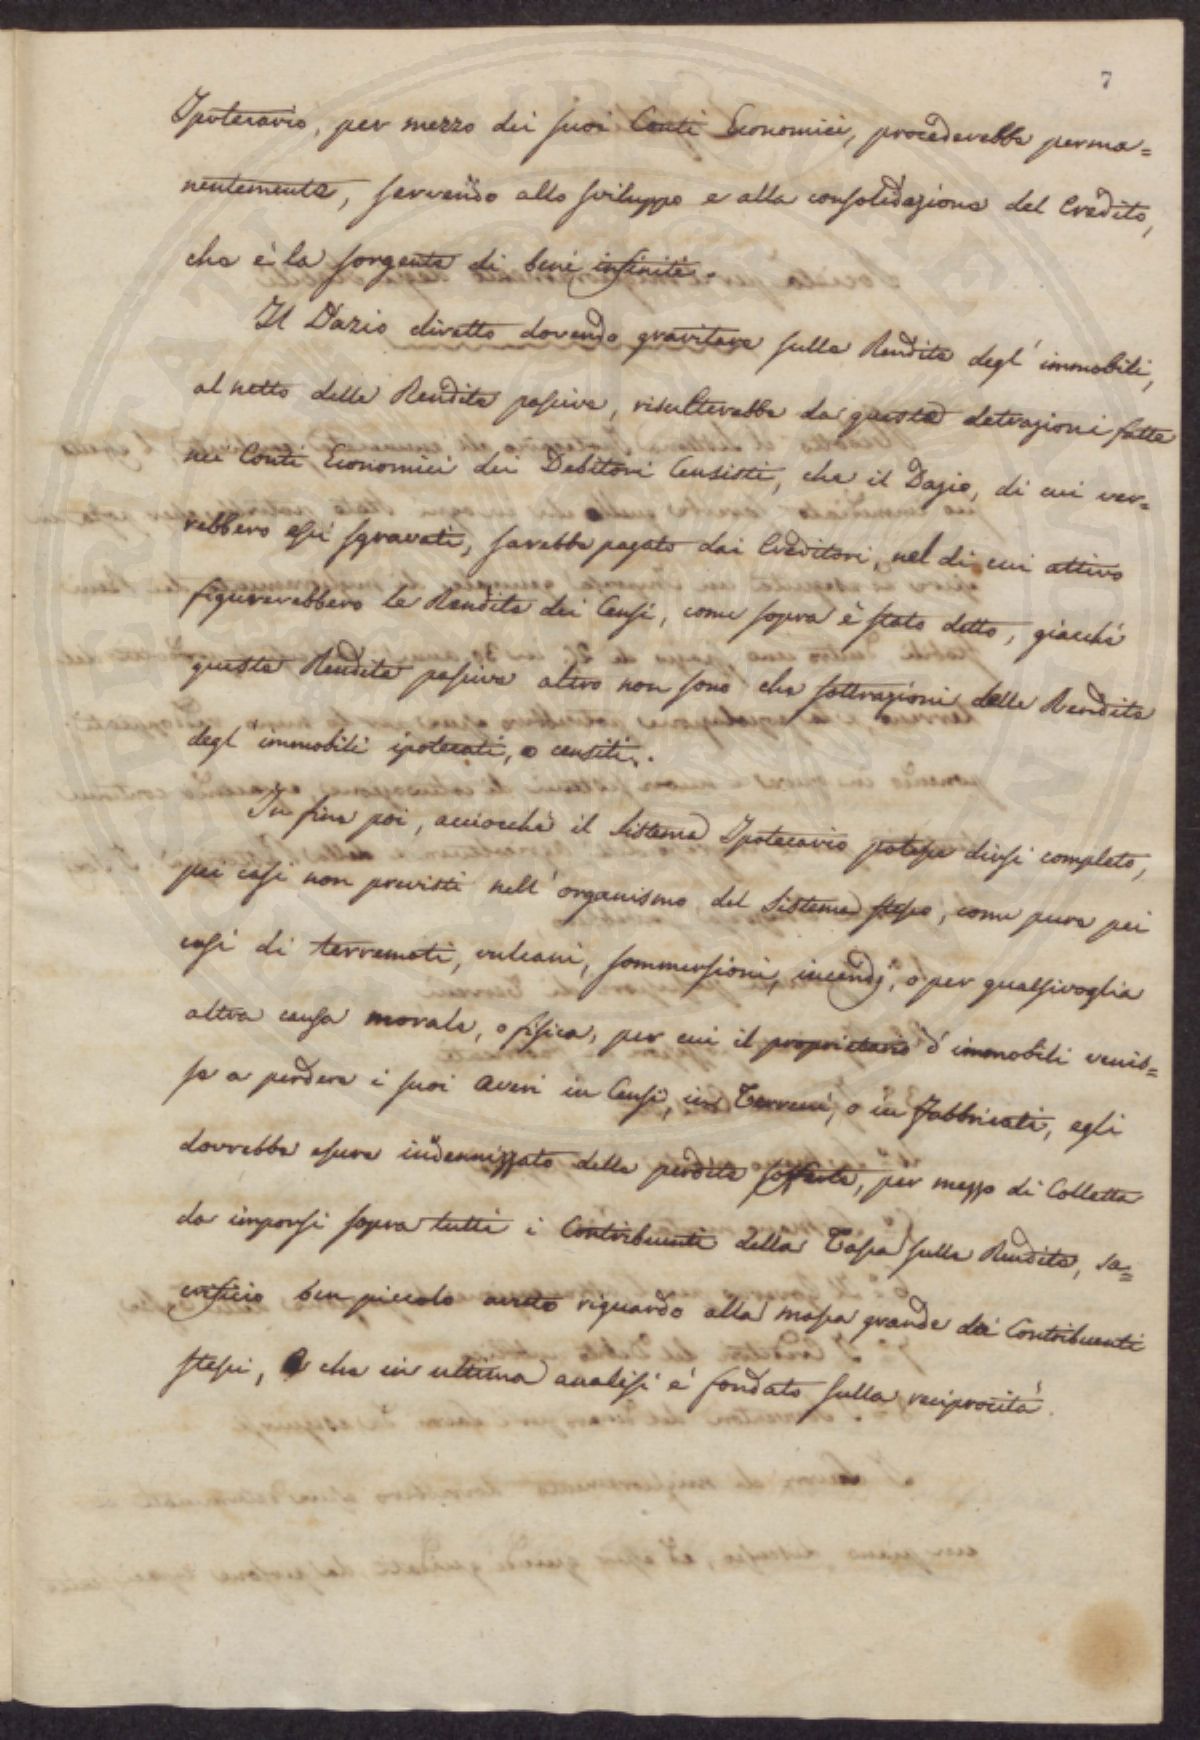 7
Ipotecario, per mezzo dei suoi Conti Economici, procederebbe perma=
nentemente, servendo allo sviluppo e alla consolidazione del Credito,
che è la sorgente di beni infiniti.
Il Dazio diretto dovendo gravitare sulla Rendita degl' immobili,
al netto della Rendita passiva, risulterebbe da queste detrazioni fatte
nei Conti Economici dei Debitori Censisti, che il Dazio, di cui ver-
rebbero essi sgravati, sarebbe pagato dai Creditori, nel di cui attivo
figurerebbero le Rendite dei Censi, come sopra è stato detto, giacchè
queste Rendite passive altro non sono che sottrazioni delle Rendite
degl' immobili ipotecati, o censiti.
In fine poi, acciocchè il Sistema Ipotecario potesse dirsi completo,
pei casi non previsti nell' organismo del Sistema stesso, come pure pei
casi di terremoti, vulcani, sommersioni, incendj, o per qualsivoglia
altra causa morale, o fisica, per cui il proprietario d' immobili venis=
se a perdere i suoi averi in Censi, in Terreni, o in fabbricati, egli
dovrebbe essere indennizzato della perdita sofferta, per mezzo di Colletta
da imporsi sopra tutti i Contribuenti della Tassa sulla Rendita, sa=
crificio ben piccolo avuto riguardo alla massa grande dei Contribuenti
stessi, e che in ultima analisi è fondato sulla reciprocità.